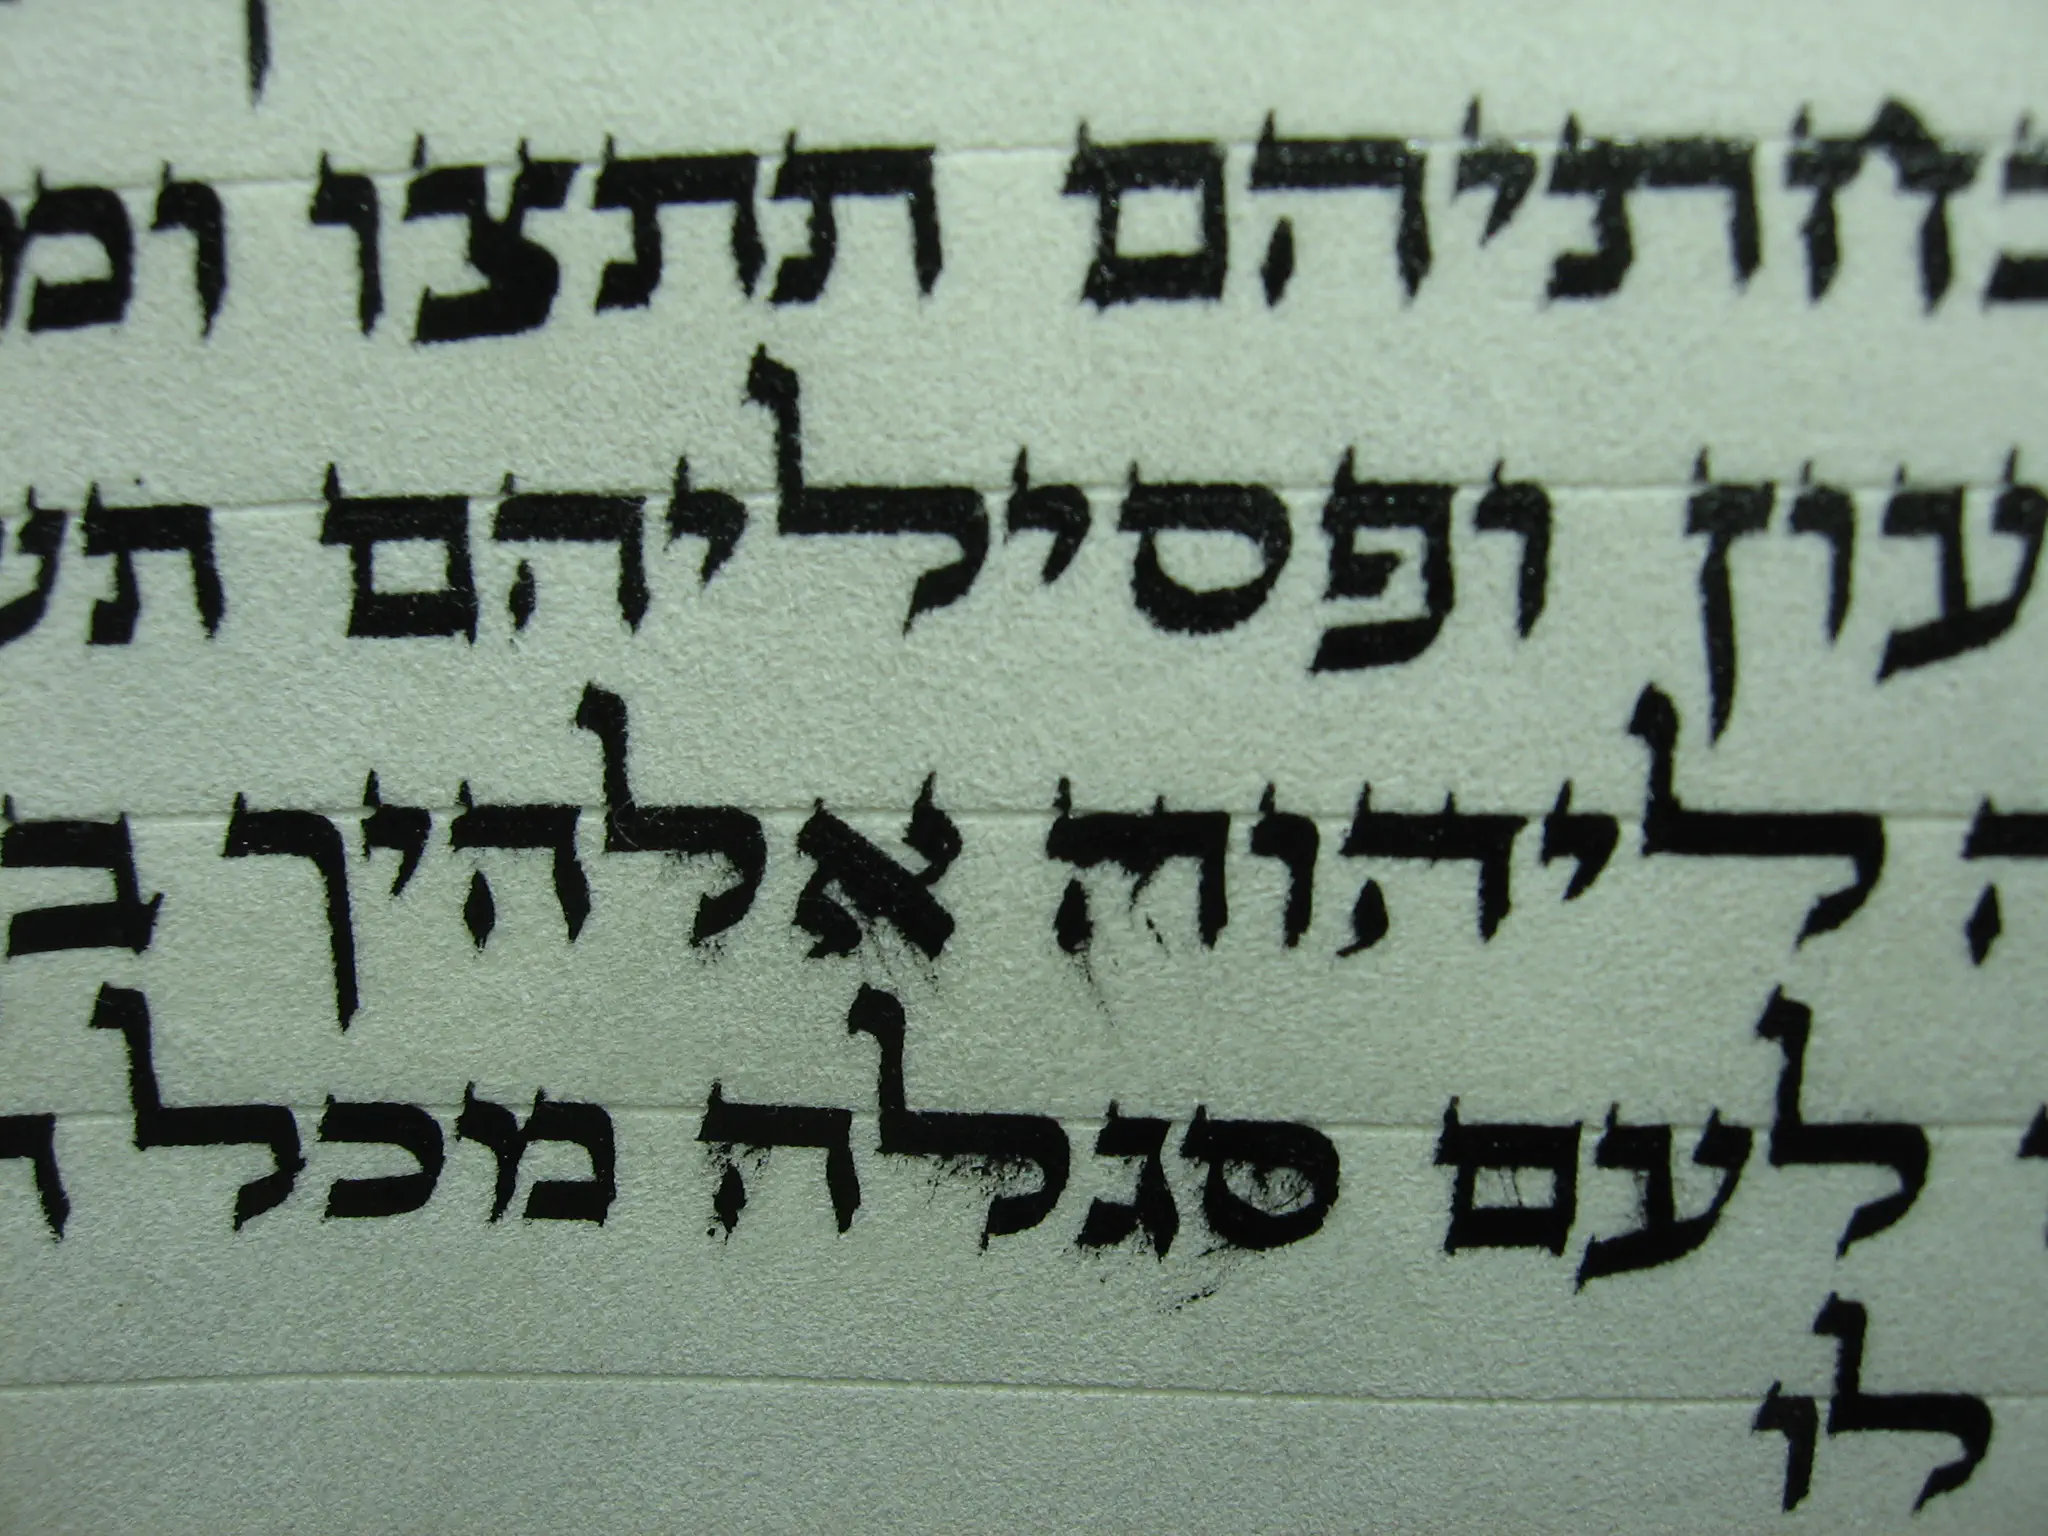 בחתיהם תתצו ומ
עון ופסיליהם תש
ה ליהוה אלהיך ב
לעם סגלה מכל
לו